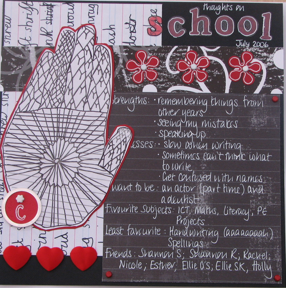 thoughts on
school
July 2006
strengths: - remembering things from
other years
- seeing my mistakes
- speaking up
- slow when writing
- sometimes can't think what
to write
- Get confused with names
want to be: an actor (part time) and
a
Favourite Subjects: ICT, Maths, Literacy, PE
Projects
Least favourite: Handwriting (aaaaaaah)
Spellings
Friends: Shannon S, Shannon K, Rachel,
Nicole, Esther, Ellie OS, Ellie SK, Holly
C